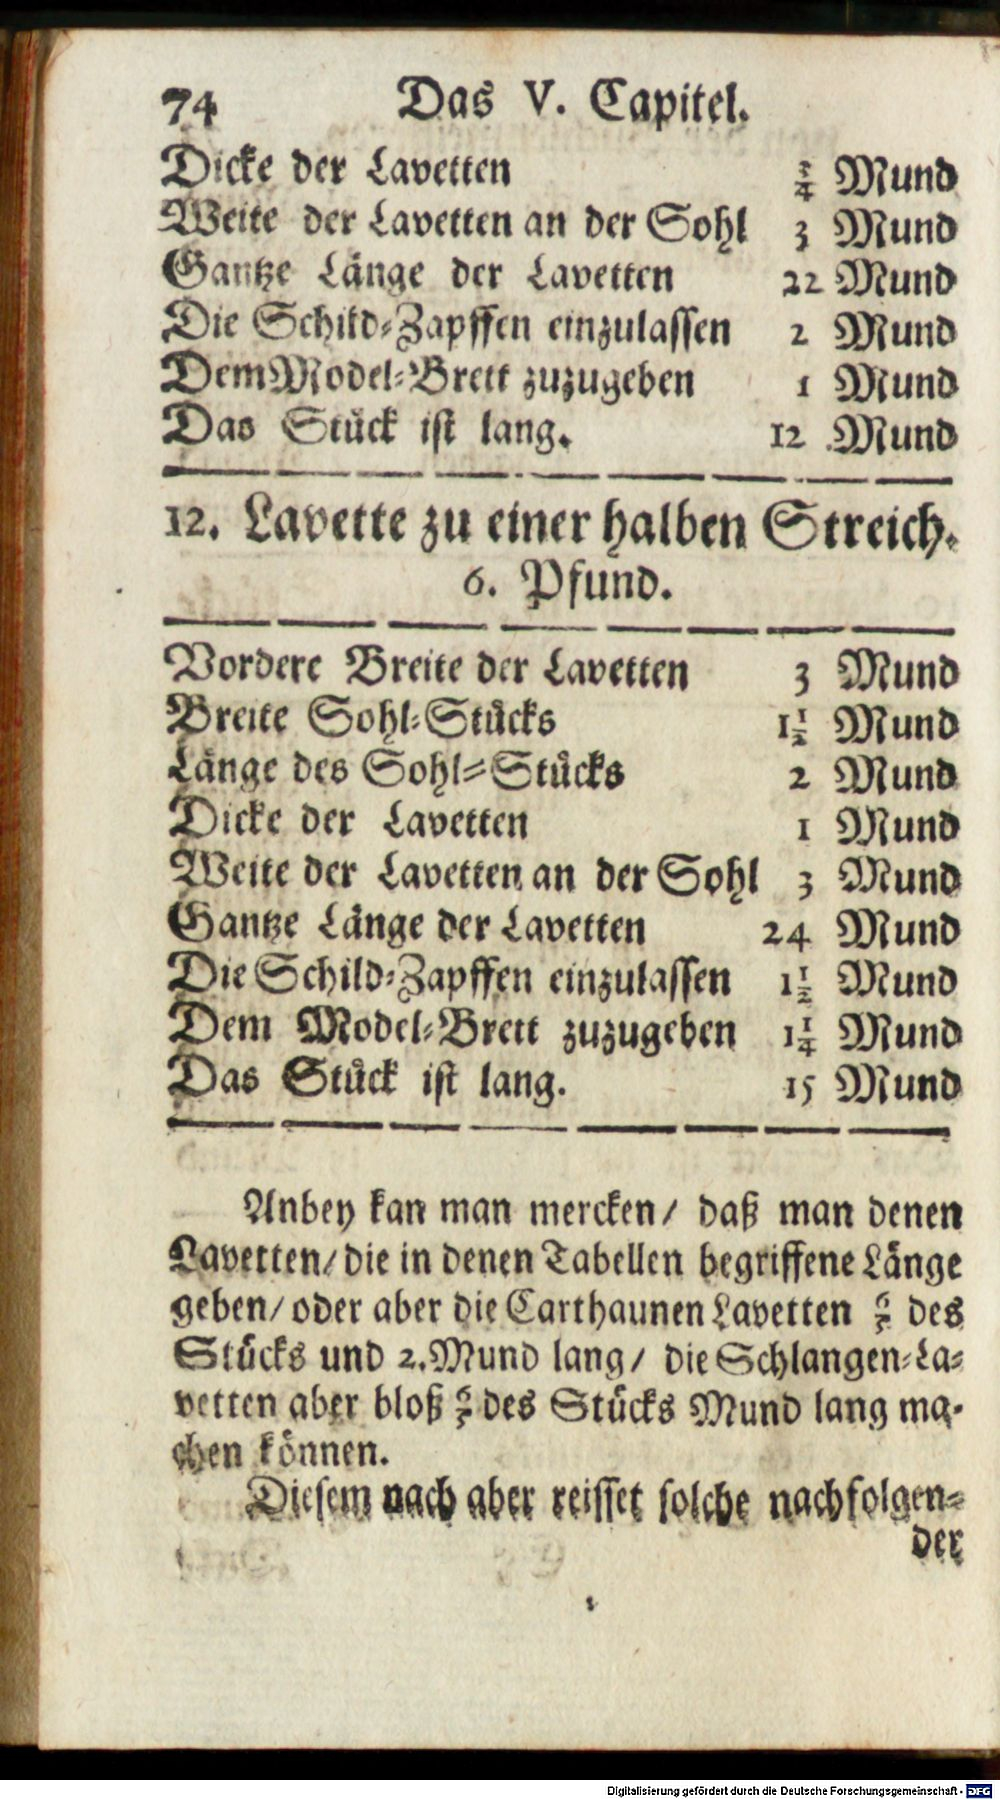 74 Das V. Capitel.
Dicke der Lavetten ¾ Mund
Weite der Lavetten an der Sohl 3 Mund
Gantze Länge der Lavetten 22 Mund
Die Schild-Zapffen einzulassen 2 Mund
Dem Model-Brett zuzugeben 1 Mund
Das Stück ist lang. 12 Mund
12. Lavette zu einer halben Streich.
6. Pfund.
Vordere Breite der Lavetten 3 Mund
Breite Sohl-Stücks 1½ Mund
Länge des Sohl-Stücks 2 Mund
Dicke der Lavetten 1 Mund
Weite der Lavetten an der Sohl 3 Mund
Gantze Länge der Lavetten 24 Mund
Die Schild-Zapffen einzulassen 1½ Mund
Dem Model-Brett zuzugeben 1¼ Mund
Das Stück ist lang. 15 Mund
Anbey kan man mercken/ daß man denen
Lavetten/ die in denen Tabellen begriffene Länge
geben/ oder aber die Carthaunen Lavetten des
Stücks und 2. Mund lang/ die Schlangen-La-
vetten aber bloß des Stücks Mund lang ma-
chen können.
Diesem nach aber reisset solche nachfolgen-
der
Digitalisierung gefördert durch die Deutsche Forschungsgemeinschaft - DFG